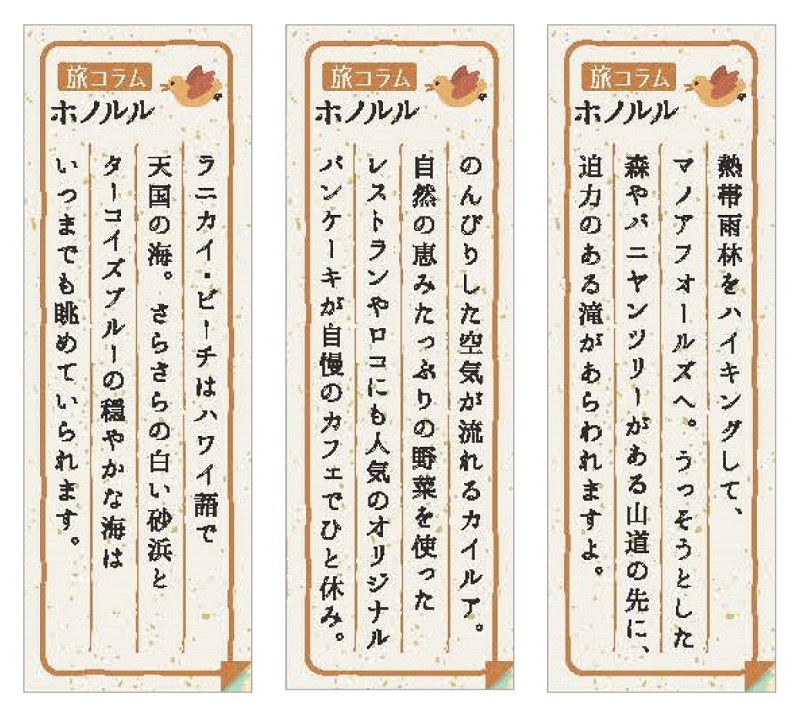 旅コラム
ホノルル
ラニカイ・ビーチはハワイ語で
天国の海。さらさらの白い砂浜と
ターコイズブルーの穏やかな海は
いつまでも眺めていられます。
旅コラム
ホノルル
のんびりした空気が流れるカイルア。
自然の恵みたっぷりの野菜を使った
レストランやロコにも人気のオリジナル
パンケーキが自慢のカフェでひと休み。
旅コラム
ホノルル
熱帯雨林をハイキングして、
マノアフォールズへ。うっそうとした
森やバニヤンツリーがある山道の先に、
迫力のある滝があらわれますよ。